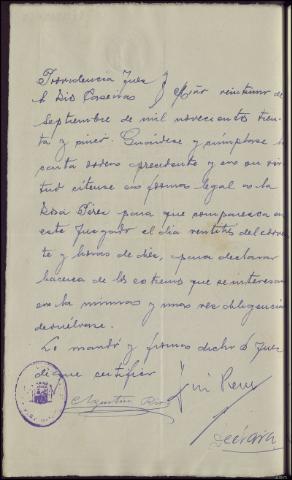 Providencia Juez
Sr Dio Caseiras } a veintiuno de
Septiembre de mil novecientos trein
ta y cinco. Guárdese y cúmplase la
carta orden precedente y en su vir
tud cítese en forma legal a la
Rosa Pérez para que comparezca en
este Juzgado el día veintitres del corrien
te y horas de diez, para declarar
hacerca de los extremos que se interesan
en la misma y una vez diligencia
devuélvase.
Lo mandó y firma dicho Sr Juez
de que certifico
Agustin